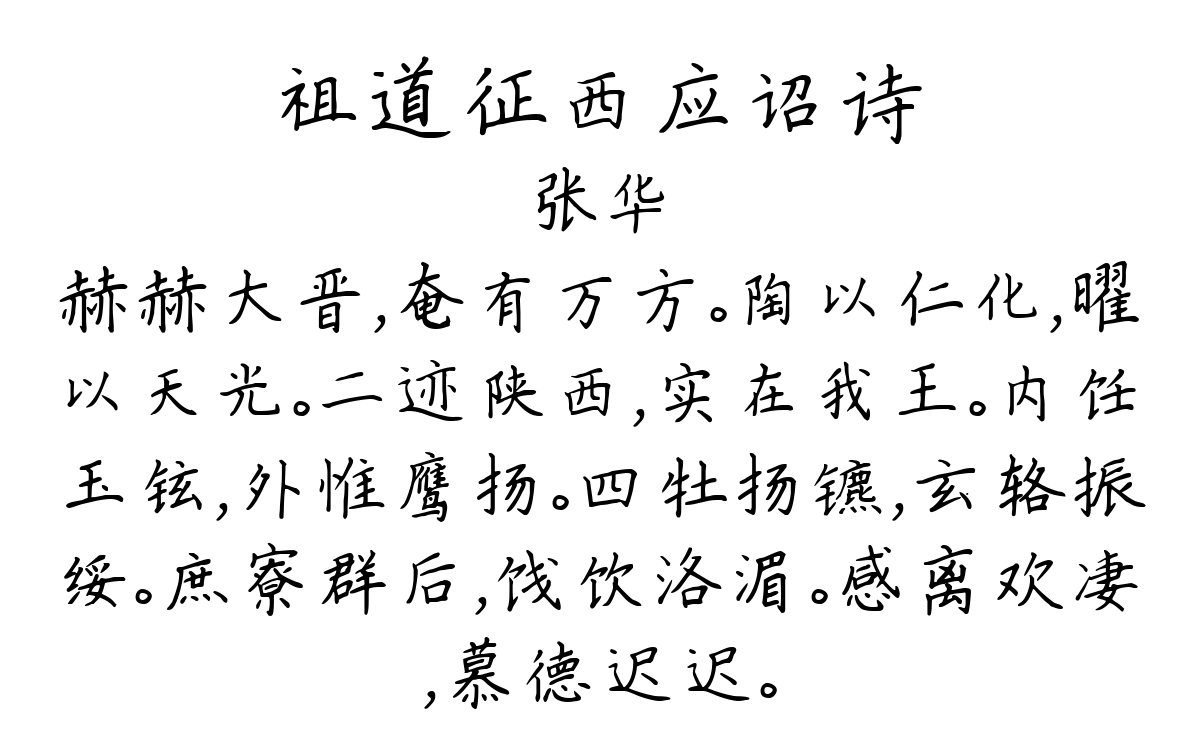 祖道征西应诏诗
张华
赫赫大晋,奄有万方。陶以仁化,曜
以天光。二迹陕西,实在我王。内饪
玉铉,外惟鹰扬。四牡扬镳,玄辂振
绥。庶寮群后,饯饮洛湄。感离欢凄
,慕德迟迟。